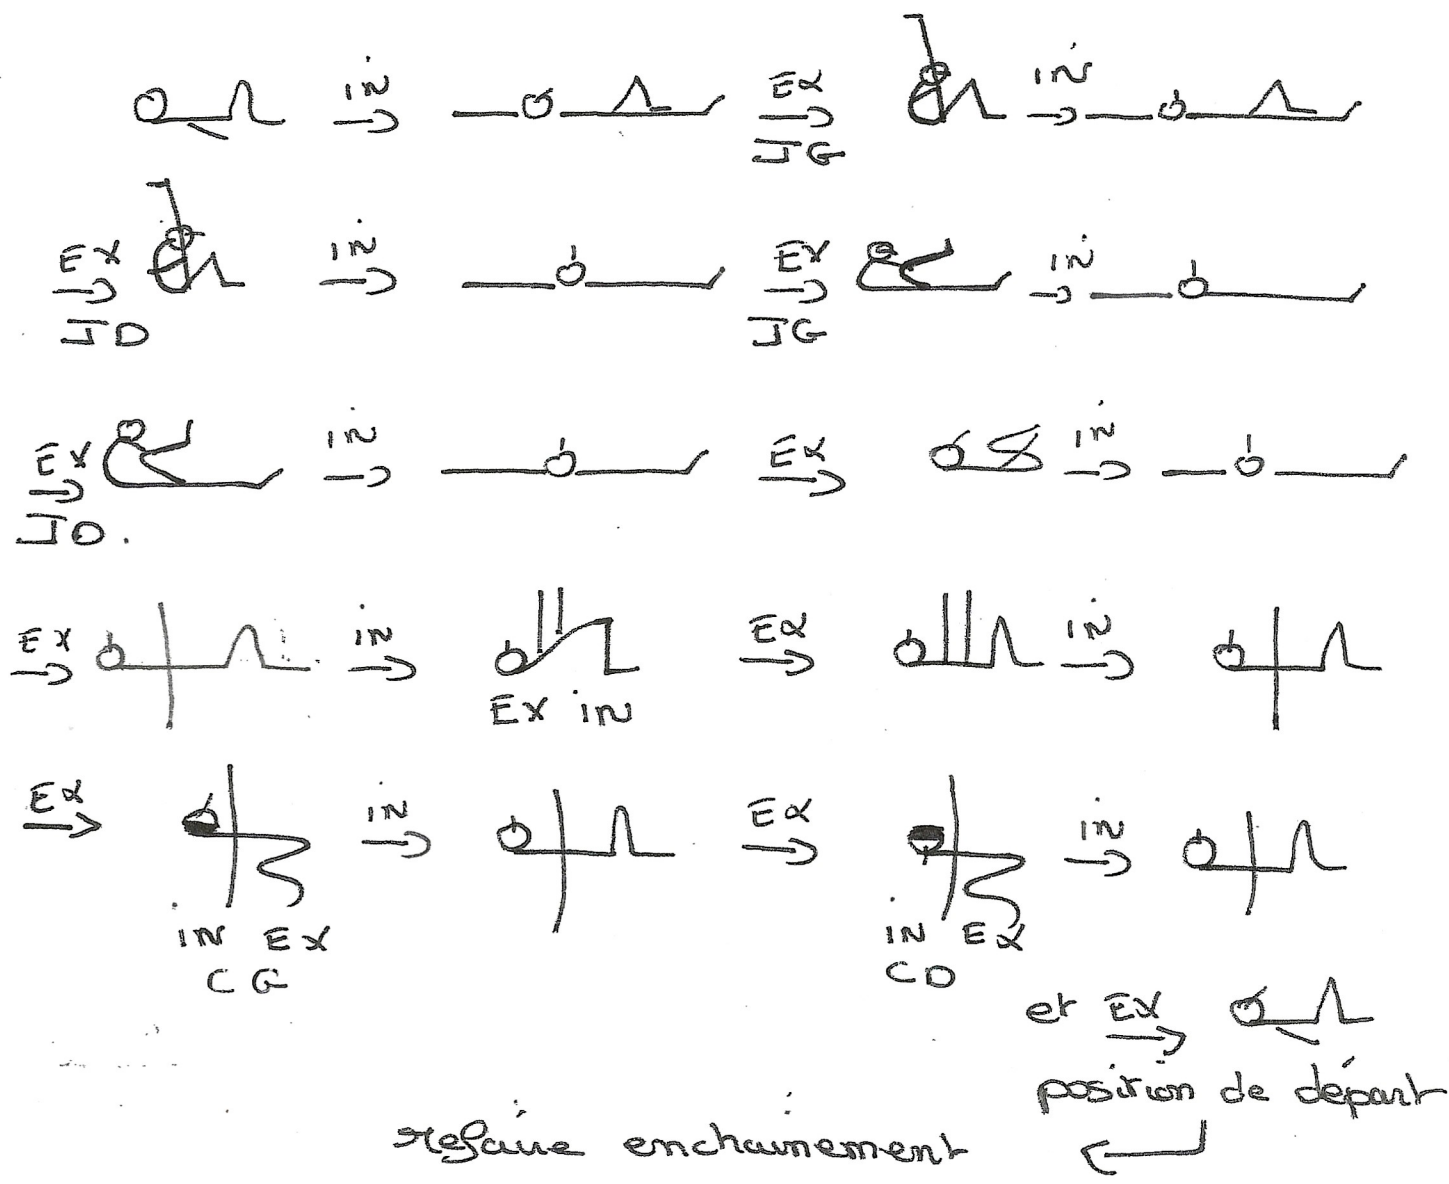 IN EX IN
JG
EX IN EX IN
JD JG
EX IN EX IN
JD.
EX IN EX IN
EX IN
EX IN EX IN
IN EX IN EX
CG CD
et EX
position de départ
refaire enchainement